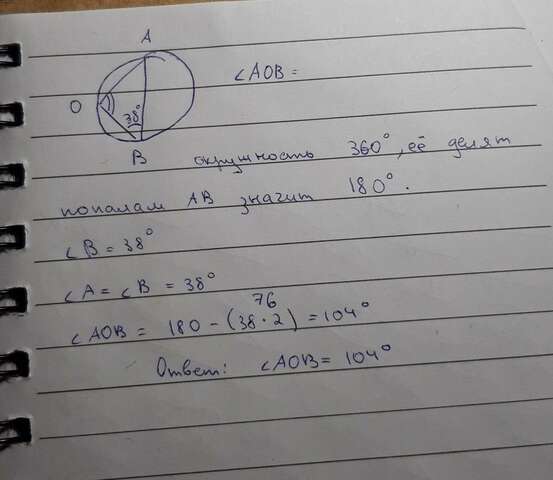 A
∠AOB =
O
38°
B
окружность 360°, её делят
пополам AB значит 180°.
∠B = 38°
∠A = ∠B = 38°
76
∠AOB = 180 - (38 · 2) = 104°
Ответ: ∠AOB = 104°